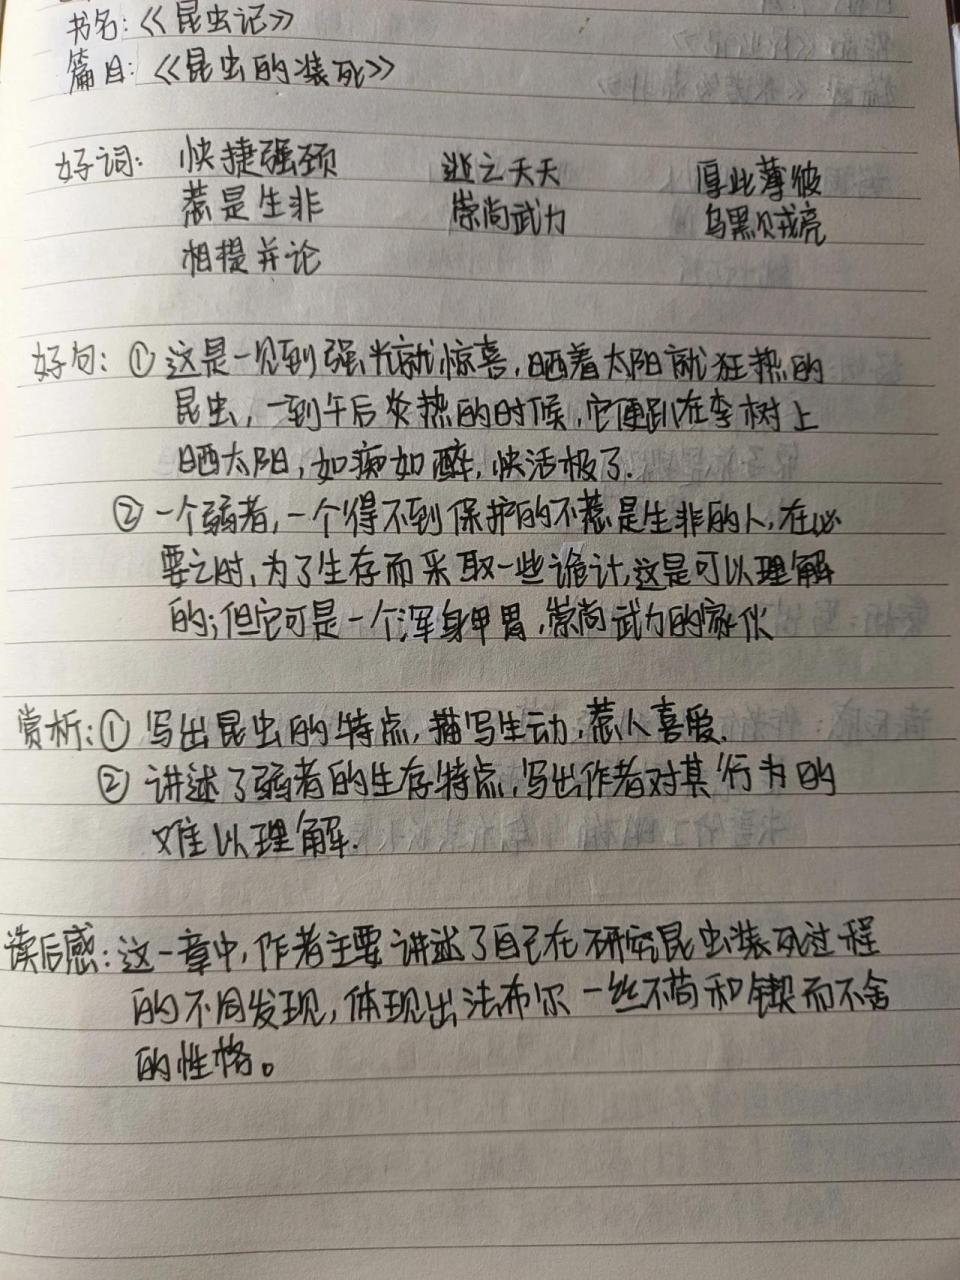 书名：《昆虫记》
篇目：《昆虫的装死》
好词： 快捷强颈 逃之夭夭 厚此薄彼
惹是生非 崇尚武力 乌黑贼亮
相提并论
好句：① 这是一见到强光就惊喜，晒着太阳就狂热的
昆虫，一到午后炎热的时候，它便趴在李树上
晒太阳，如痴如醉，快活极了.
② 一个弱者，一个得不到保护的不惹是生非的人，在必
要之时，为了生存而采取一些诡计，这是可以理解
的；但它可是一个浑身甲胄，崇尚武力的家伙
赏析：① 写出昆虫的特点，描写生动，惹人喜爱.
② 讲述了弱者的生存特点，写出作者对其行为的
难以理解.
读后感：这一章中，作者主要讲述了自己在研究昆虫装死过程
的不同发现，体现出法布尔一丝不苟和锲而不舍
的性格。